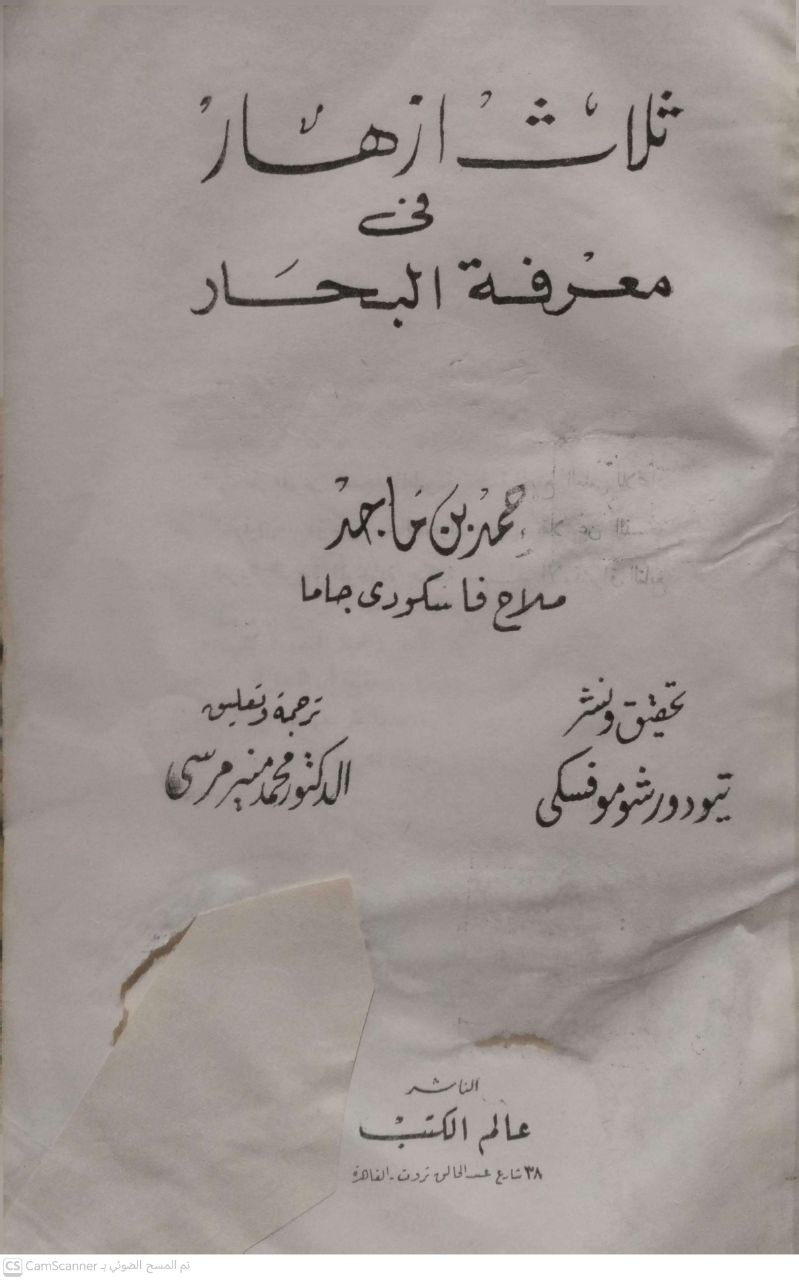 ثلاث ازهار
فى
معرفة البحار
أحمد بن ماجد
ملاح فاسكودى جاما
تحقيق ونشر
تيودور شوموفسكى
ترجمة وتعليق
الدكتور محمد منير مرسى
الناشر
عالم الكتب
٣٨ شارع عبد الخالق ثروت - القاهرة
CS CamScanner تم المسح الضوئي بـ